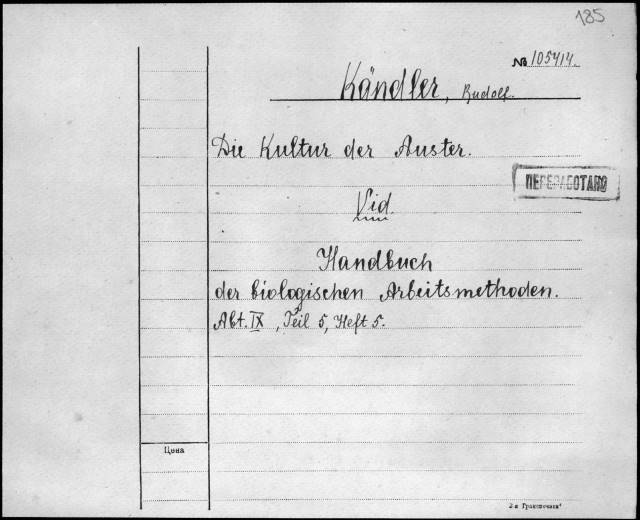 185
№ 105414.
Kändler, Rudolf.
Die Kultur der Auster.
ПЕРЕРАБОТАНО
Vid.
Handbuch
der biologischen Arbeitsmethoden.
Abt. IX, Teil 5, Heft 5.
Цена